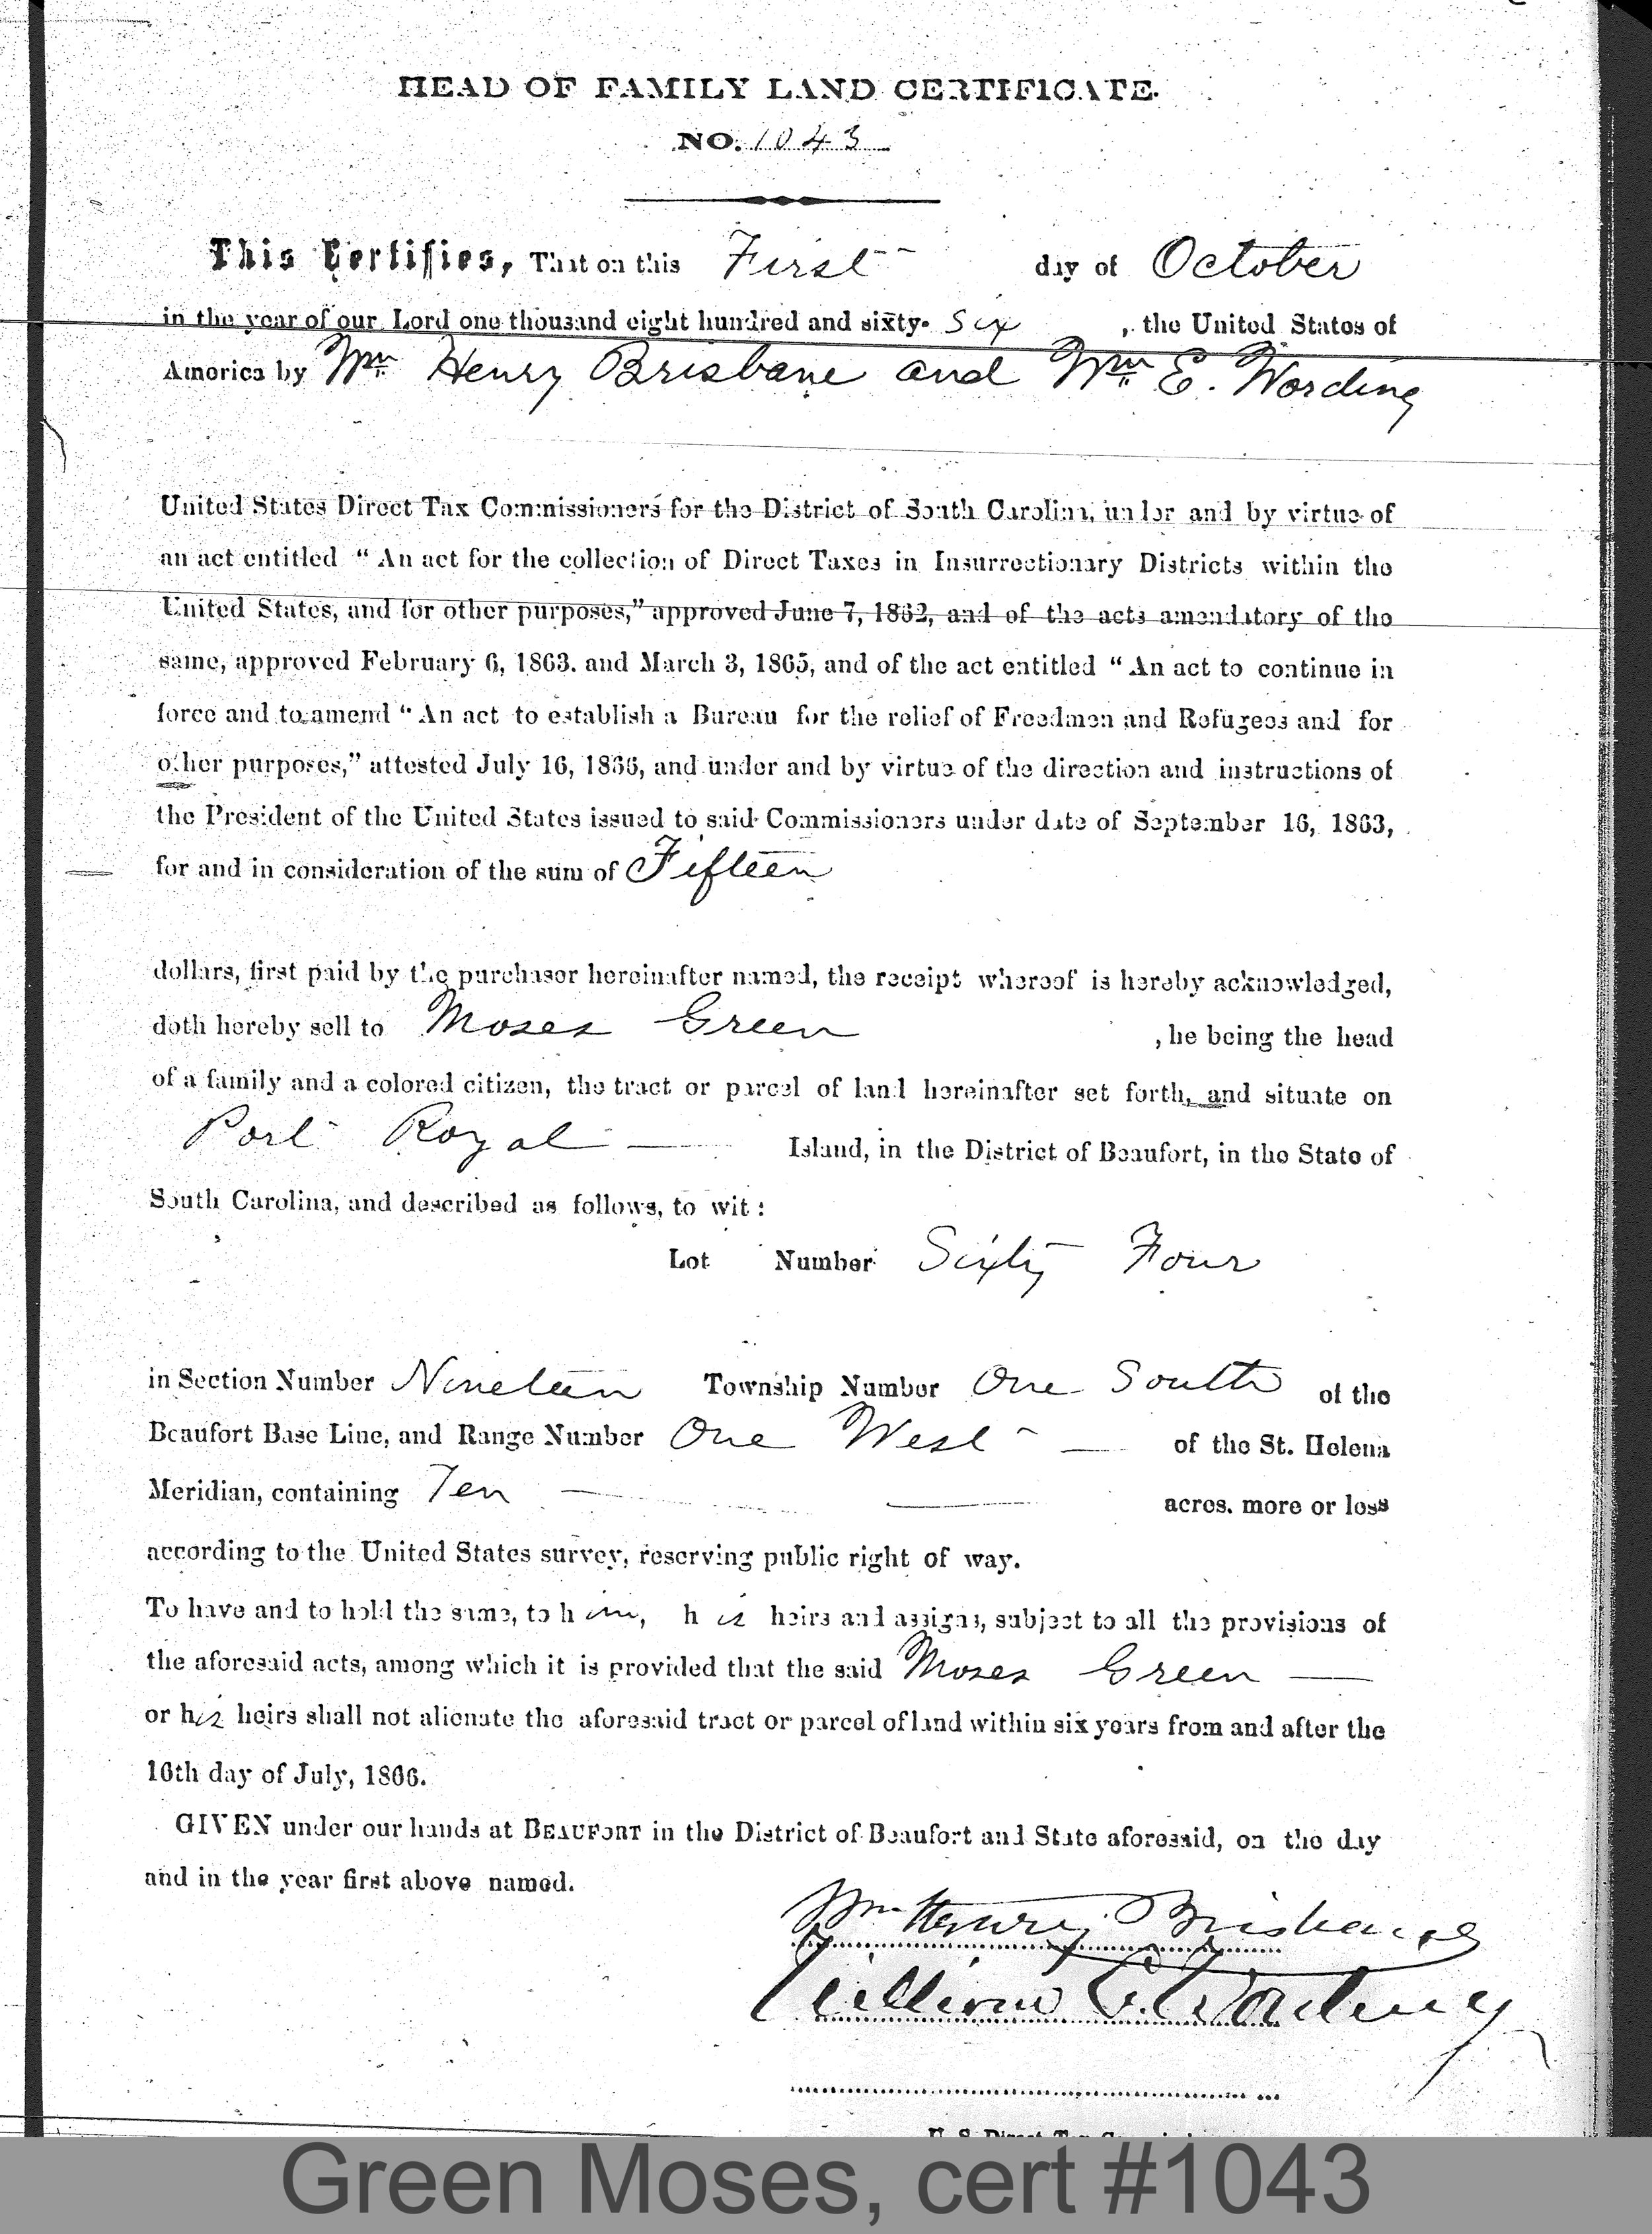 HEAD OF FAMILY LAND CERTIFICATE.
NO. 1043
This Certifies, That on this First day of October
in the year of our Lord one thousand eight hundred and sixty- Six, the United States of
America by Wm Henry Brisbane and Wm E. Wording
United States Direct Tax Commissioners for the District of South Carolina, under and by virtue of
an act entitled “ An act for the collection of Direct Taxes in Insurrectionary Districts within the
United States, and for other purposes,” approved June 7, 1862, and of the acts amendatory of the
same, approved February 6, 1863. and March 3, 1865, and of the act entitled “ An act to continue in
force and to amend “ An act to establish a Bureau for the relief of Freedmen and Refugees and for
other purposes,” attested July 16, 1866, and under and by virtue of the direction and instructions of
the President of the United States issued to said Commissioners under date of September 16, 1863,
for and in consideration of the sum of Fifteen
dollars, first paid by the purchaser hereinafter named, the receipt whereof is hereby acknowledged,
doth hereby sell to Moses Green , he being the head
of a family and a colored citizen, the tract or parcel of land hereinafter set forth, and situate on
Port Royal Island, in the District of Beaufort, in the State of
South Carolina, and described as follows, to wit :
Lot Number Sixty Four
in Section Number Nineteen Township Number One South of the
Beaufort Base Line, and Range Number One West of the St. Helena
Meridian, containing Ten acres. more or less
according to the United States survey, reserving public right of way.
To have and to hold the same, to him, his heirs and assigns, subject to all the provisions of
the aforesaid acts, among which it is provided that the said Moses Green
or his heirs shall not alienate the aforesaid tract or parcel of land within six years from and after the
16th day of July, 1866.
GIVEN under our hands at BEAUFORT in the District of Beaufort and State aforesaid, on the day
and in the year first above named.
Wm Henry Brisbane
William E. Wording
Green Moses, cert #1043